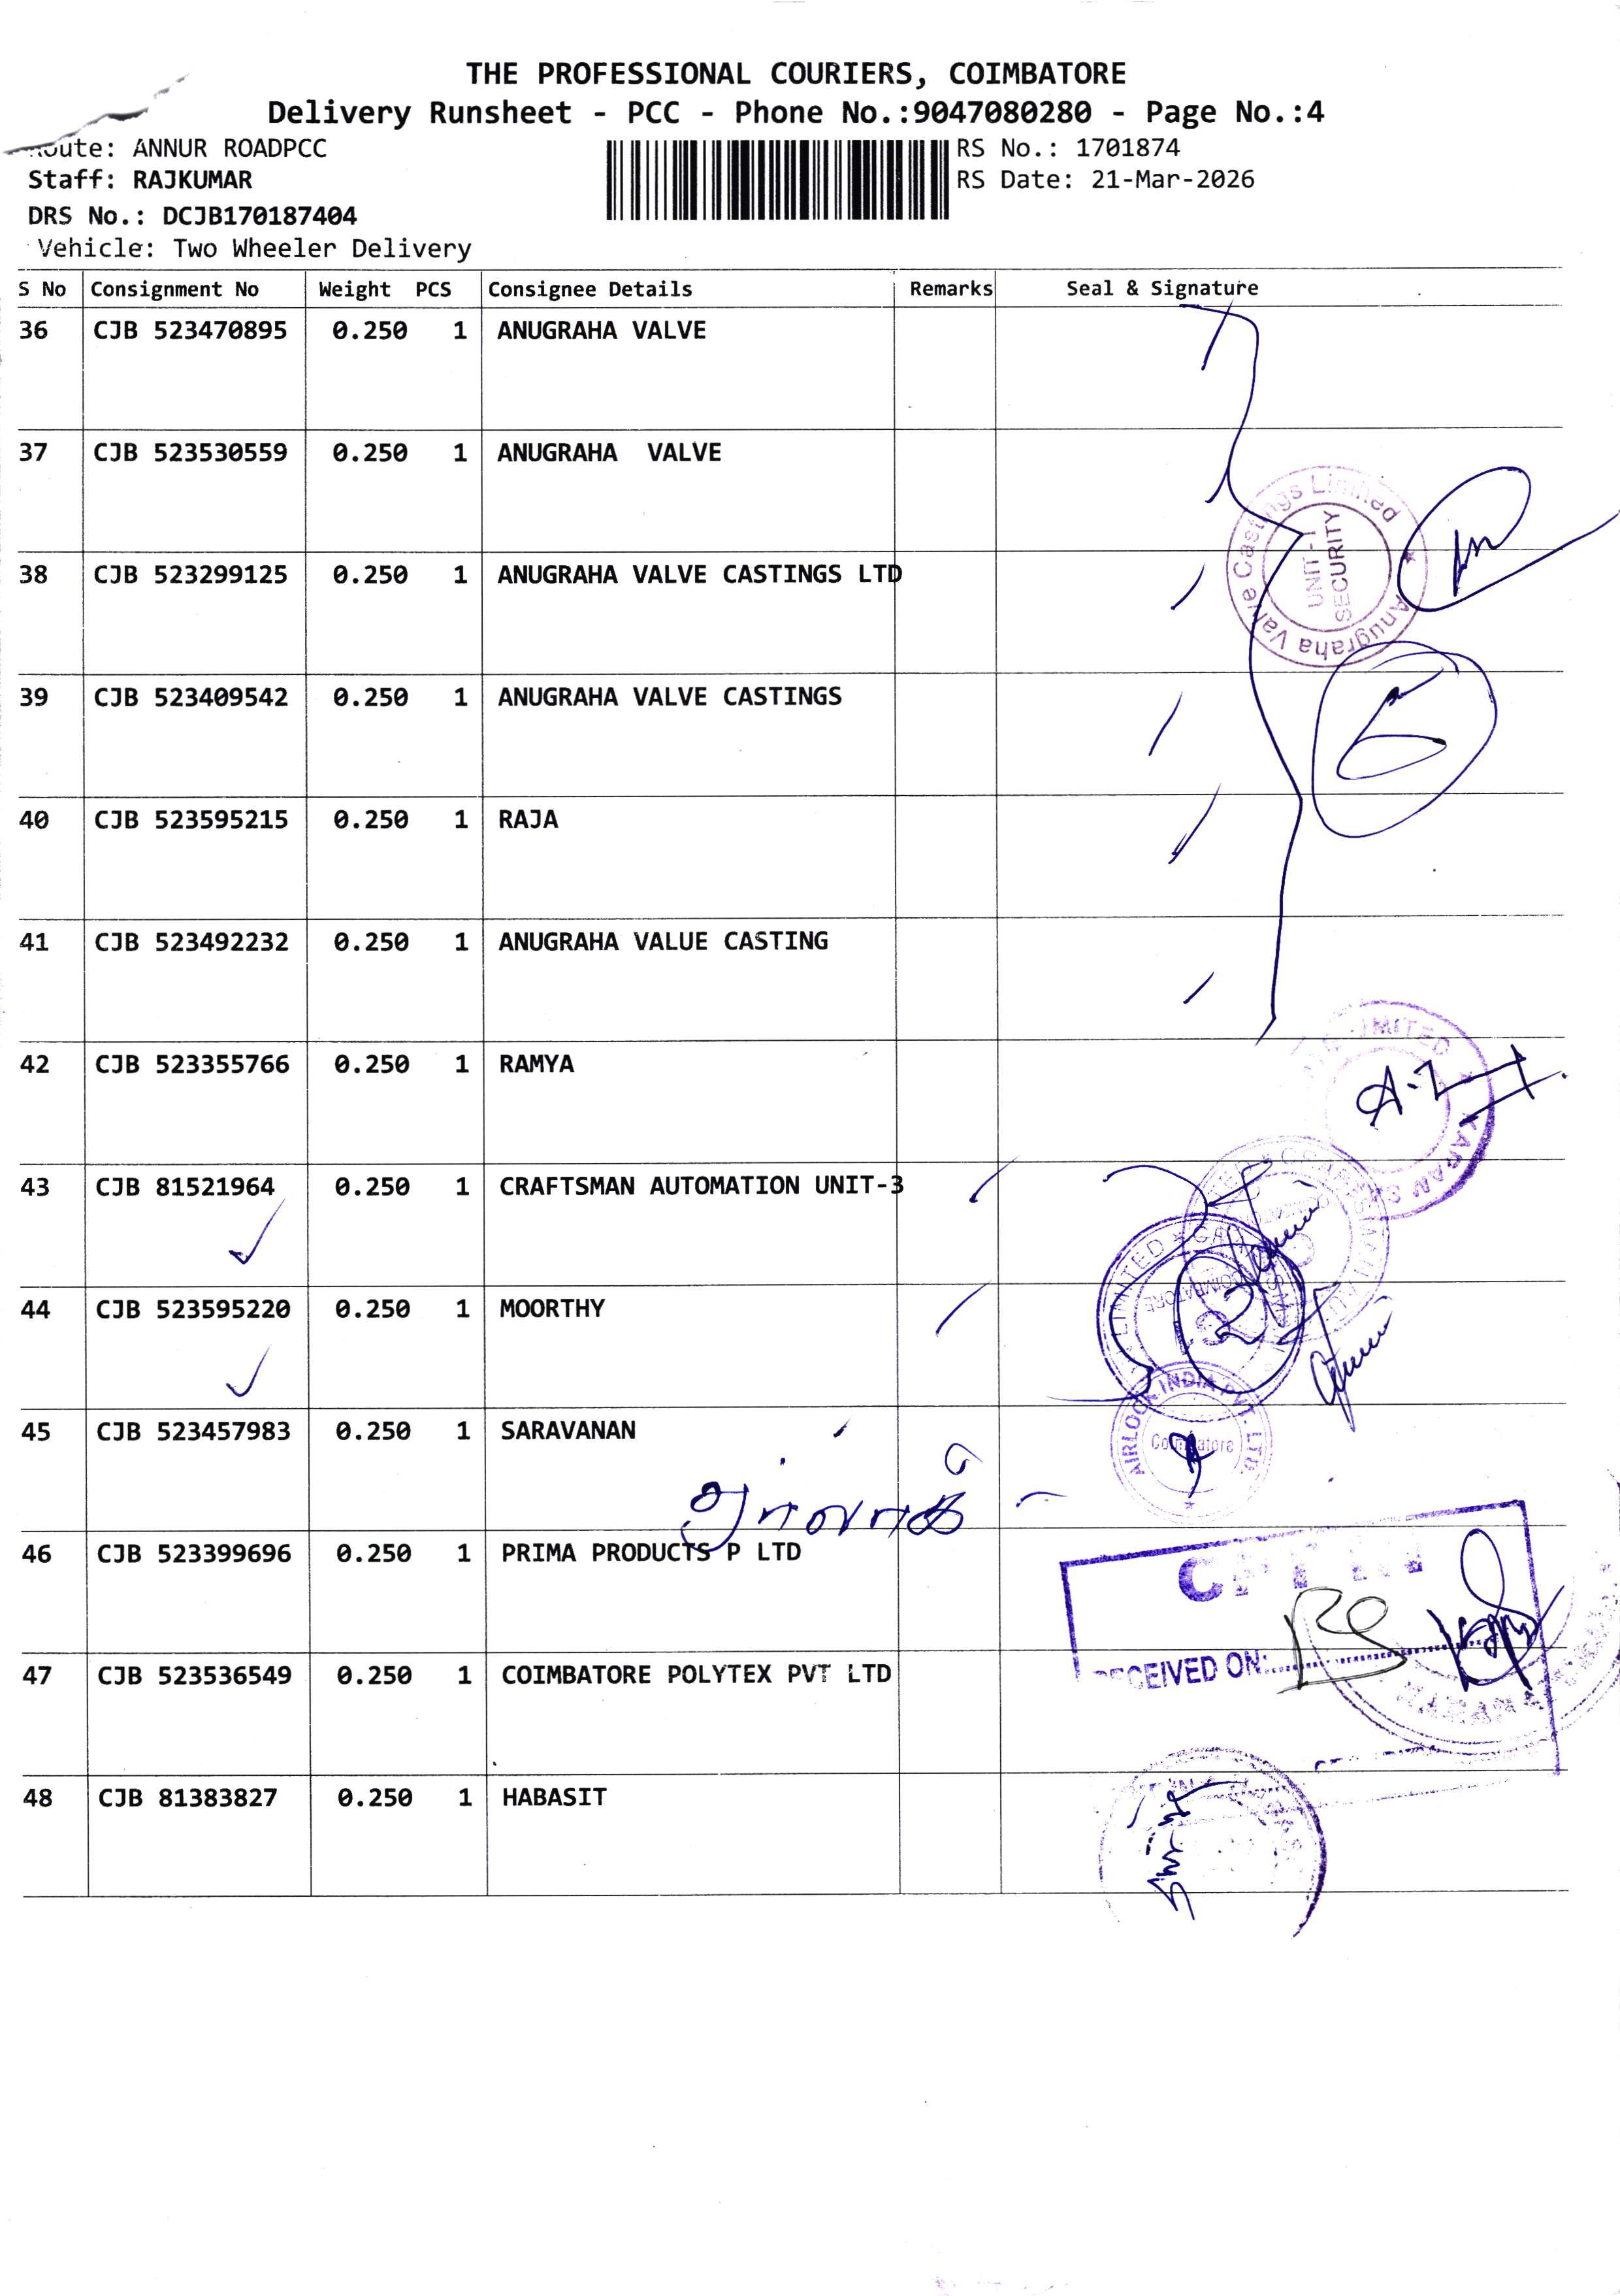 THE PROFESSIONAL COURIERS, COIMBATORE
Delivery Runsheet - PCC - Phone No.:9047080280 - Page No.:4
Route: ANNUR ROADPCC
Staff: RAJKUMAR
DRS No.: DCJB170187404
Vehicle: Two Wheeler Delivery
RS No.: 1701874
RS Date: 21-Mar-2026
S No Consignment No Weight PCS Consignee Details Remarks Seal & Signature
36 CJB 523470895 0.250 1 ANUGRAHA VALVE
37 CJB 523530559 0.250 1 ANUGRAHA VALVE
Anugraha Valve Castings Limited
UNIT-I
SECURITY
38 CJB 523299125 0.250 1 ANUGRAHA VALVE CASTINGS LTD
39 CJB 523409542 0.250 1 ANUGRAHA VALVE CASTINGS
40 CJB 523595215 0.250 1 RAJA
41 CJB 523492232 0.250 1 ANUGRAHA VALUE CASTING
42 CJB 523355766 0.250 1 RAMYA
43 CJB 81521964 0.250 1 CRAFTSMAN AUTOMATION UNIT-3
44 CJB 523595220 0.250 1 MOORTHY
45 CJB 523457983 0.250 1 SARAVANAN
AIRLOCK INDIA PVT. LTD.
Coimbatore
46 CJB 523399696 0.250 1 PRIMA PRODUCTS P LTD
47 CJB 523536549 0.250 1 COIMBATORE POLYTEX PVT LTD
RECEIVED ON:
48 CJB 81383827 0.250 1 HABASIT